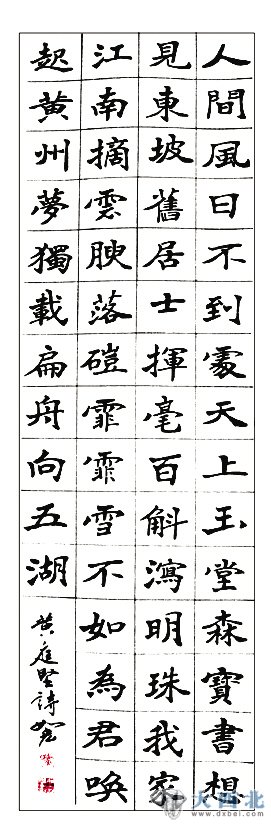 人間風日不到處天上玉堂森寶書想
見東坡舊居士揮毫百斛瀉明珠我家
江南摘雲腴落磑霏霏雪不如為君喚
起黃州夢獨載扁舟向五湖
黃庭堅詩
大西北
www.dxbei.com